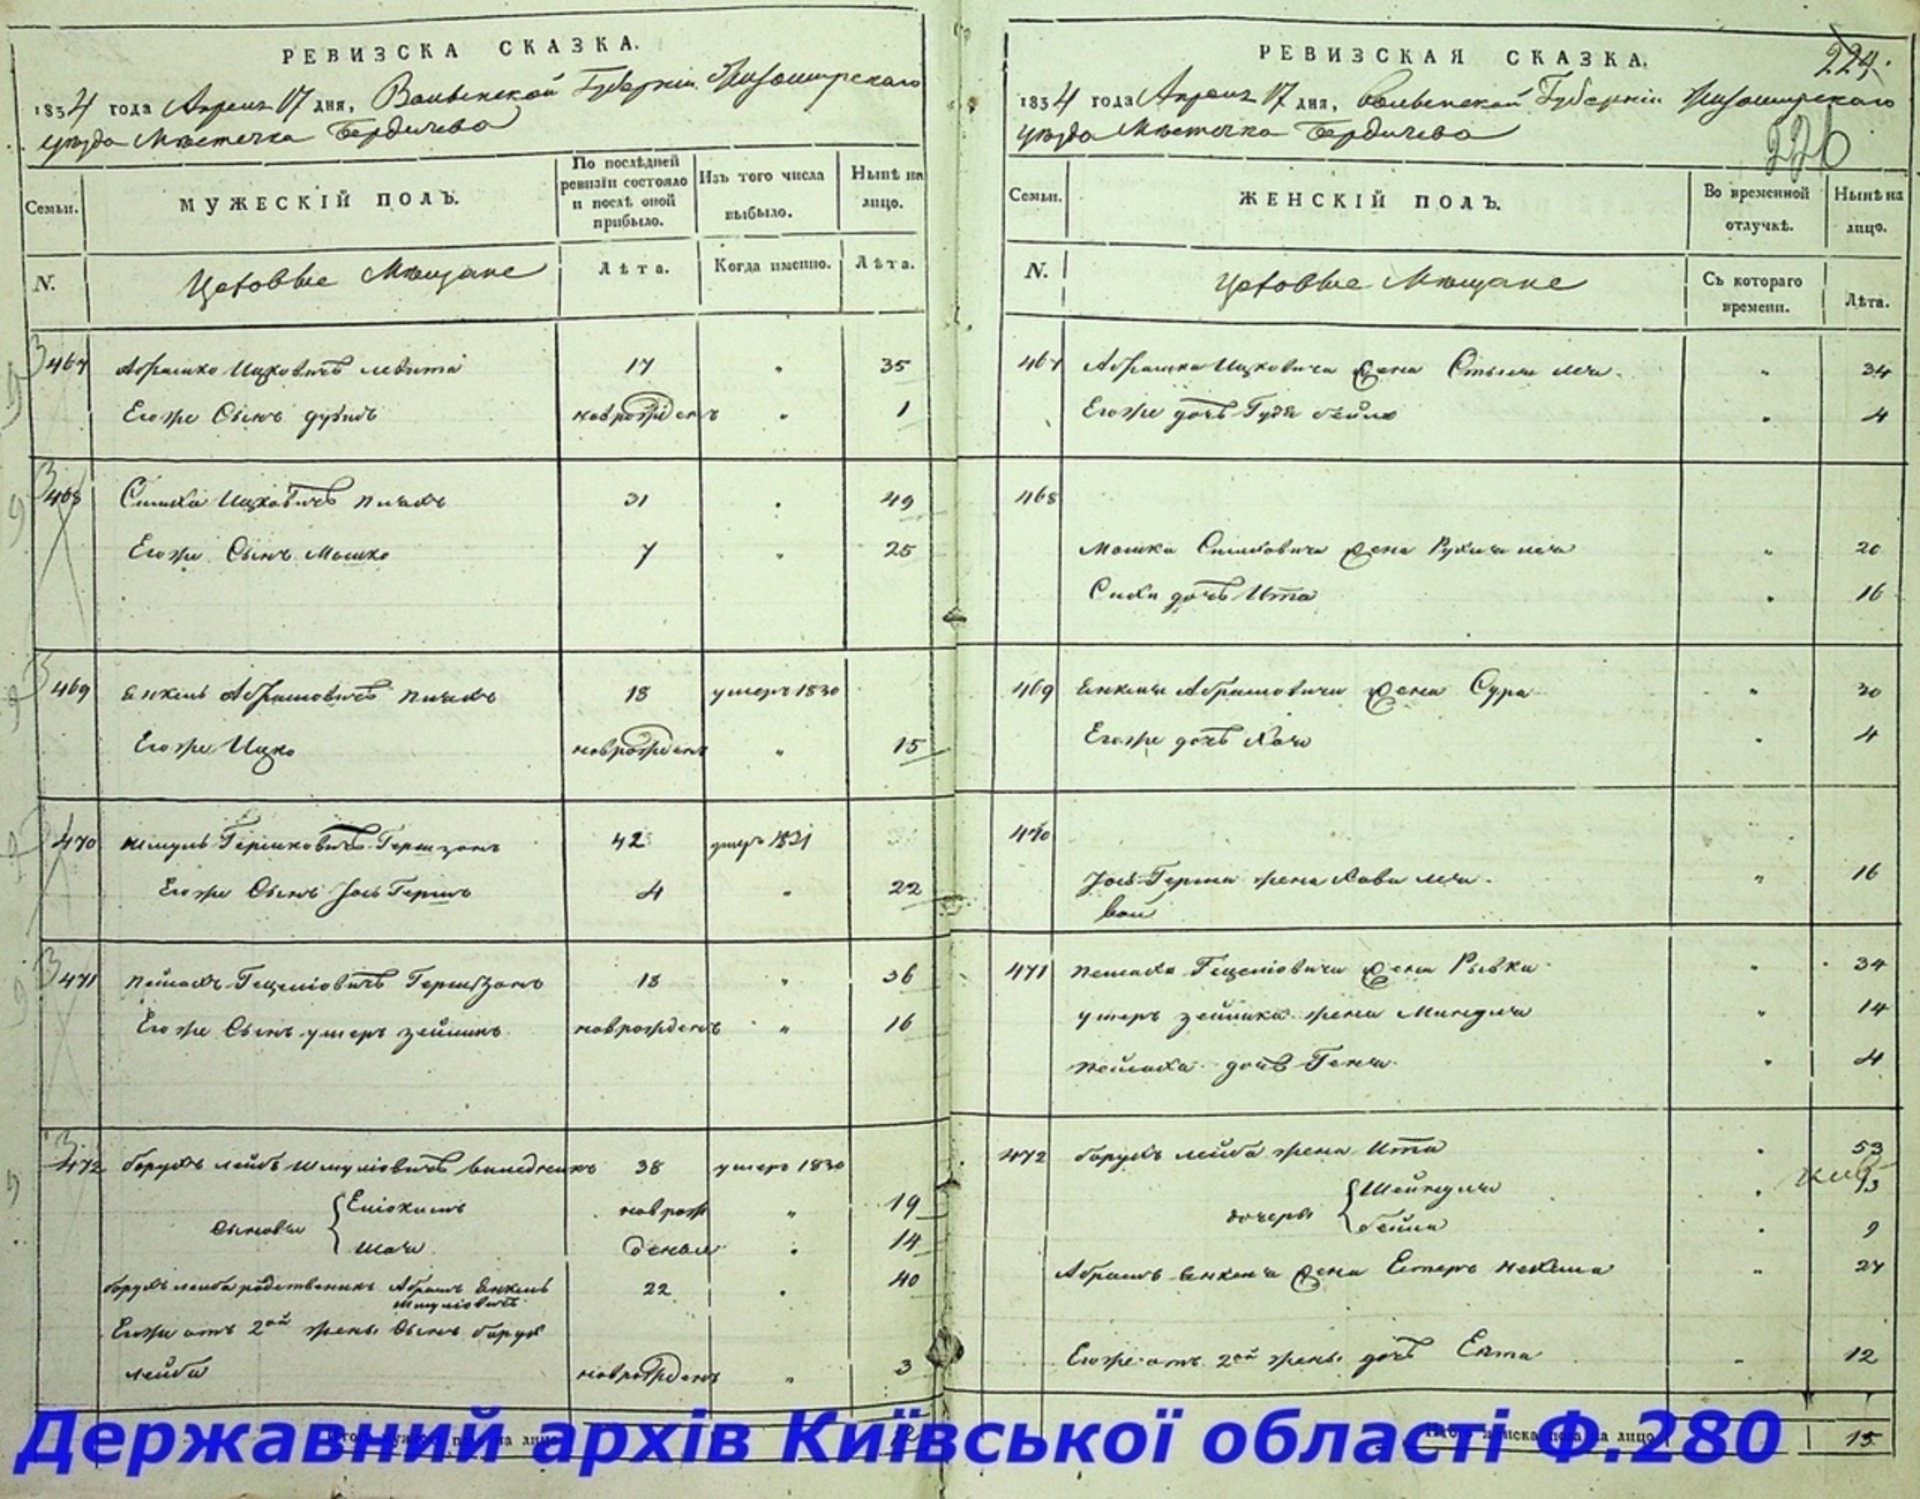 РЕВИЗСКА СКАЗКА.
1834 года Апреля 17 дня, Волынской Губернии Житомирского
уезда Местечка Бердичева
Семьи.
МУЖЕСКІЙ ПОЛЪ.
По послѣдней ревизіи состояло и послѣ оной прибыло.
Изъ того числа выбыло.
Нынѣ на лицо.
N.
Цеховые Мещане
Лѣта.
Когда именно.
Лѣта.
467 Абрамко Ицковичъ 17 " 35
Егоже Сынъ Дувидъ новрожденъ " 1
468 Симха Ицковичъ 31 " 49
Егоже Сынъ Мошко 7 " 25
469 Янкель Абрамовичъ 18 умеръ 1830
Егоже Ицко новрожденъ " 15
470 Шмуль Гершковичъ Гершзонъ 42 умеръ 1831
Егоже Сынъ Јось Гершъ 4 " 22
471 Пейсахъ Гершзонъ 18 " 36
Егоже Сынъ новрожденъ " 16
472 Борухъ Лейбъ Шмуліовичъ 38 умеръ 1830
Сыновья новрож " 19
деные " 14
Борухъ Лейба родственникъ Абрамъ Янкель 22 " 40
Шмуліовичъ
Егоже отъ 2ой жены Сынъ Борух
Лейба новрожденъ " 3
Итого мужеска пола на лицо
РЕВИЗСКАЯ СКАЗКА.
224.
1834 года Апреля 17 дня, Волынской Губерніи Житомирского
226
уезда Местечка Бердичева
Семьи.
ЖЕНСКІЙ ПОЛЪ.
Во временной отлучкѣ.
Нынѣ на лицо.
N.
Цеховые Мещане
Съ котораго времени.
Лѣта.
467 Абрамка Ицковича жена " 34
Егоже дочь Бейла " 4
468
Мошка Симховича жена " 20
дочь Ита " 16
469 Янкеля Абрамовича жена Сура " 30
Егоже дочь Хая " 4
470
Јось Герша жена Хава " 16
471 Пейсаха жена Рывка " 34
жена Миндля " 14
Пейсаха дочь Геня " 4
472 Борухъ Лейба жена Ита " 53
дочери Шейндля " 13
Бейла " 9
Абрамъ Янкеля жена Естеръ " 27
Егоже отъ 2ой жены дочь " 12
Итого женска пола на лицо 15
Державний архів Київської області Ф.280